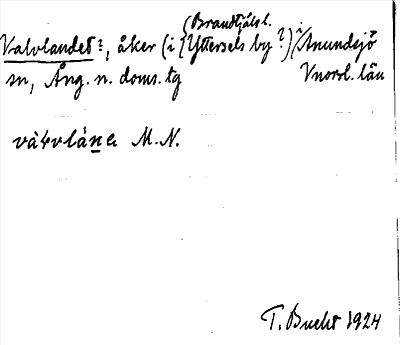 (Brandtjäls l.
Valvlandet?, åker (i {Yttersels by?) i Anundsjö
sn, Ång. n. doms. tg Vnorrl. län
M. N.
T. Bucht 1924